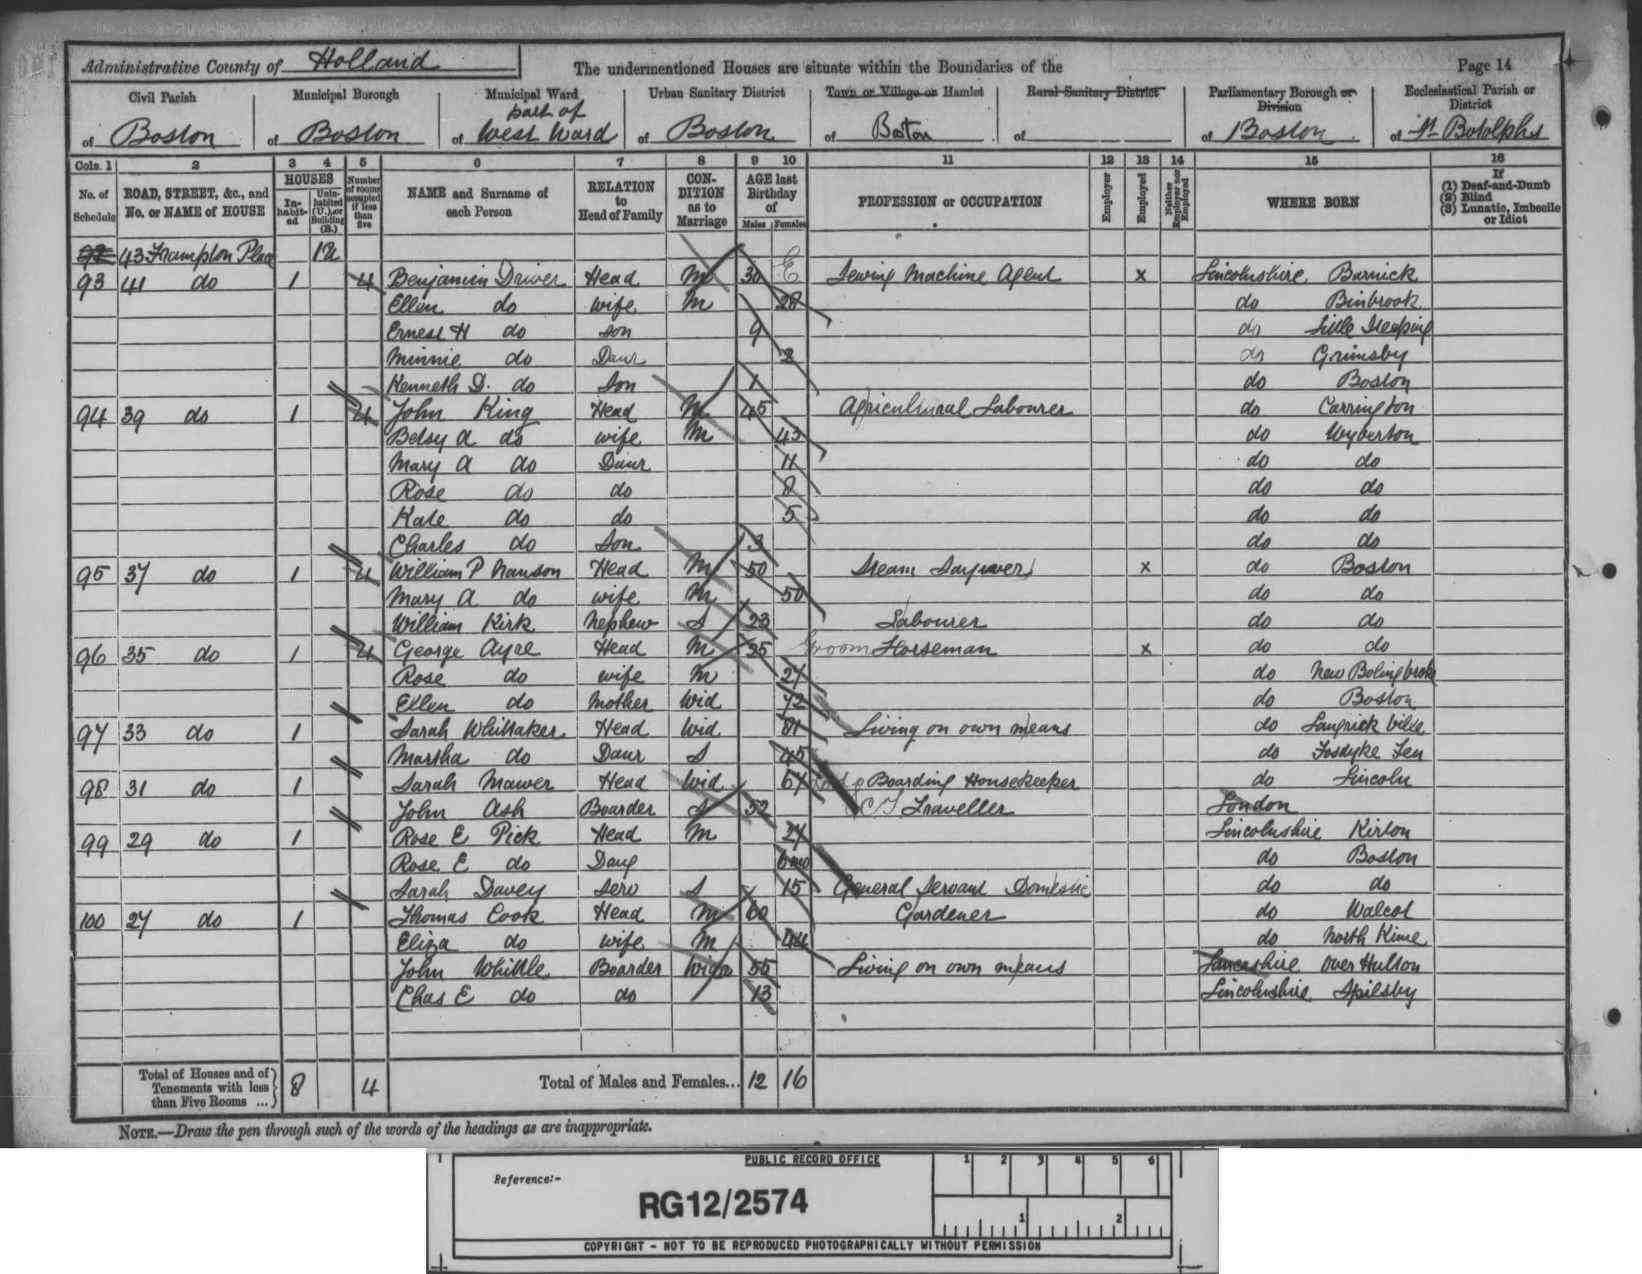 Administrative County of Holland
The undermentioned Houses are situate within the Boundaries of the
Page 14
Civil Parish of Boston
Municipal Borough of Boston
Municipal Ward part of of West Ward
Urban Sanitary District of Boston
Town or Village or Hamlet of Boston
Rural Sanitary District of
Parliamentary Borough or Division of Boston
Ecclesiastical Parish or District of St Botolphs
Cols. 1 2 3 4 5 6 7 8 9 10 11 12 13 14 15 16
No. of Schedule
ROAD, STREET, &c., and No. or NAME of HOUSE
HOUSES
In-habit-ed
Unin-habited (U.), or Building (B.)
Number of rooms occupied if less than five
NAME and Surname of each Person
RELATION to Head of Family
CON-DITION as to Marriage
AGE last Birthday of
Males Females
PROFESSION or OCCUPATION
Employer
Employed
Neither Employer nor Employed
WHERE BORN
If (1) Deaf-and-Dumb (2) Blind (3) Lunatic, Imbecile or Idiot
92 43 Frampton Place 1u
93 41 do 1 4 Benjamin Driver Head M 30 Sewing Machine Agent x Lincolnshire
Ellen do wife M 28 do Binbrook
Ernest H do Son 9 do Little Steeping
Minnie do Daur 2 do Grimsby
Kenneth D. do Son 1 do Boston
94 39 do 1 4 John King Head M 45 Agricultural Labourer do Carrington
Betsy A do wife M 43 do Wyberton
Mary A do Daur 11 do do
Rose do do 8 do do
Kate do do 5 do do
Charles do Son 3 do do
95 37 do 1 4 William P Nanson Head M 50 Steam x do Boston
Mary A do wife M 50 do do
William Kirk Nephew S 23 Labourer do do
96 35 do 1 4 George Ayre Head M 35 Groom Horseman x do do
Rose do wife M 27 do New Bolingbroke
Ellen do Mother Wid 72 do Boston
97 33 do 1 Sarah Whittaker Head Wid 81 Living on own means do Langrick Ville
Martha do Daur S 45 do Fosdyke Fen
98 31 do 1 Sarah Mawer Head Wid 67 Boarding Housekeeper do Lincoln
John Ash Boarder S 52 C T Traveller London
99 29 do 1 Rose E Pick Head M 27 Lincolnshire Kirton
Rose E do Daug 6mo do Boston
Sarah Davey Serv S 15 General Servant Domestic do do
100 27 do 1 Thomas Cook Head M 60 Gardener do Walcot
Eliza do wife M 44 do North Kime
John Whittle Boarder Widr 55 Living on own means Lancashire Over Hulton
Chas E do do 13 Lincolnshire Spilsby
Total of Houses and of Tenements with less than Five Rooms ... 8 4
Total of Males and Females... 12 16
NOTE.—Draw the pen through such of the words of the headings as are inappropriate.
PUBLIC RECORD OFFICE
1 2 3 4 5 6
Reference:-
RG12/2574
1 2
COPYRIGHT - NOT TO BE REPRODUCED PHOTOGRAPHICALLY WITHOUT PERMISSION